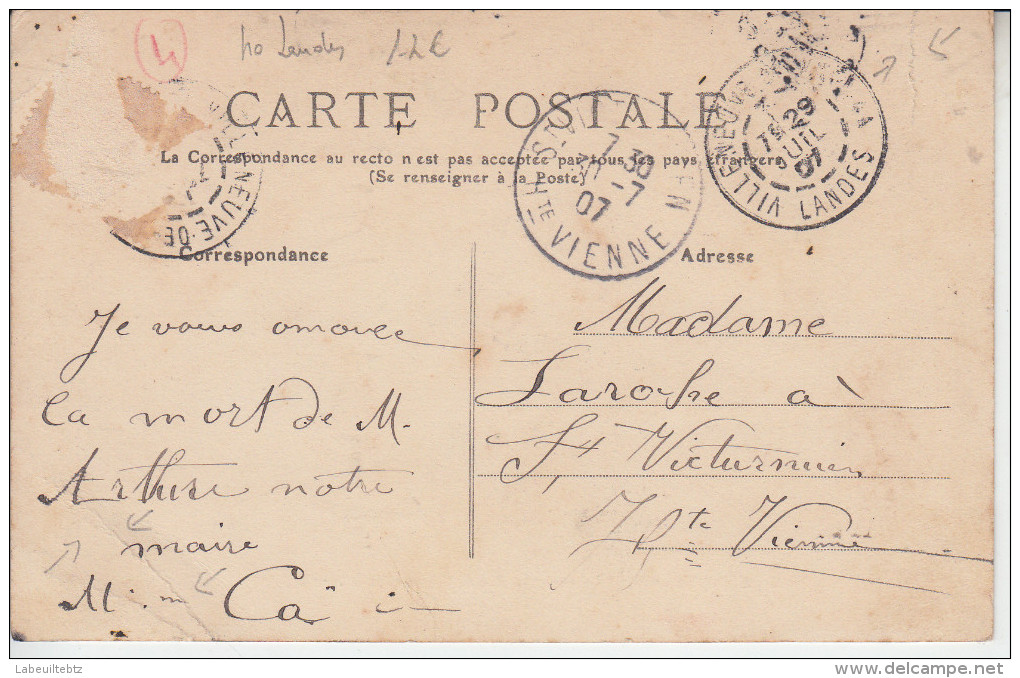 40 Landes
CARTE POSTALE
La Correspondance au recto n'est pas acceptée par tous les pays étrangers
(Se renseigner à la Poste)
VILLENEUVE-DE
7 30
30 -7
07
Hte VIENNE
VILLENEUVE
29
JUIL
07
LANDES
Correspondance
Adresse
Je vous anonce
la mort de M.
Arthure notre
maire
Madame
Laroche à
St Victurnien
Hte Vienne
Labeuiltebtz
www.delcampe.net